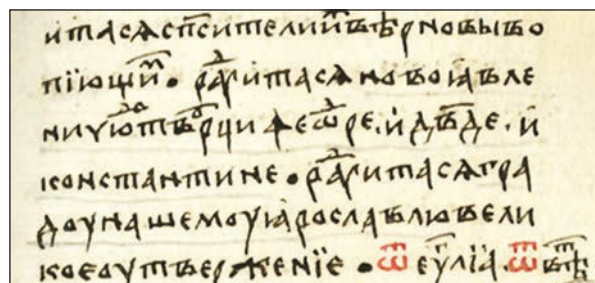 итасѧ сп҃сители иⷨ вѣрно выво
пїющиⷨ • раⷣꙋитасѧ новоꙗвле
ни чюⷣⷪтвⷪрци феѡⷣре. и дв҃де. и
константине • раⷣꙋитасѧ гра
доу нашемоу ꙗрославлю вели
кое оутверженїе • ѿ еуⷢ҇лїа. ѿ